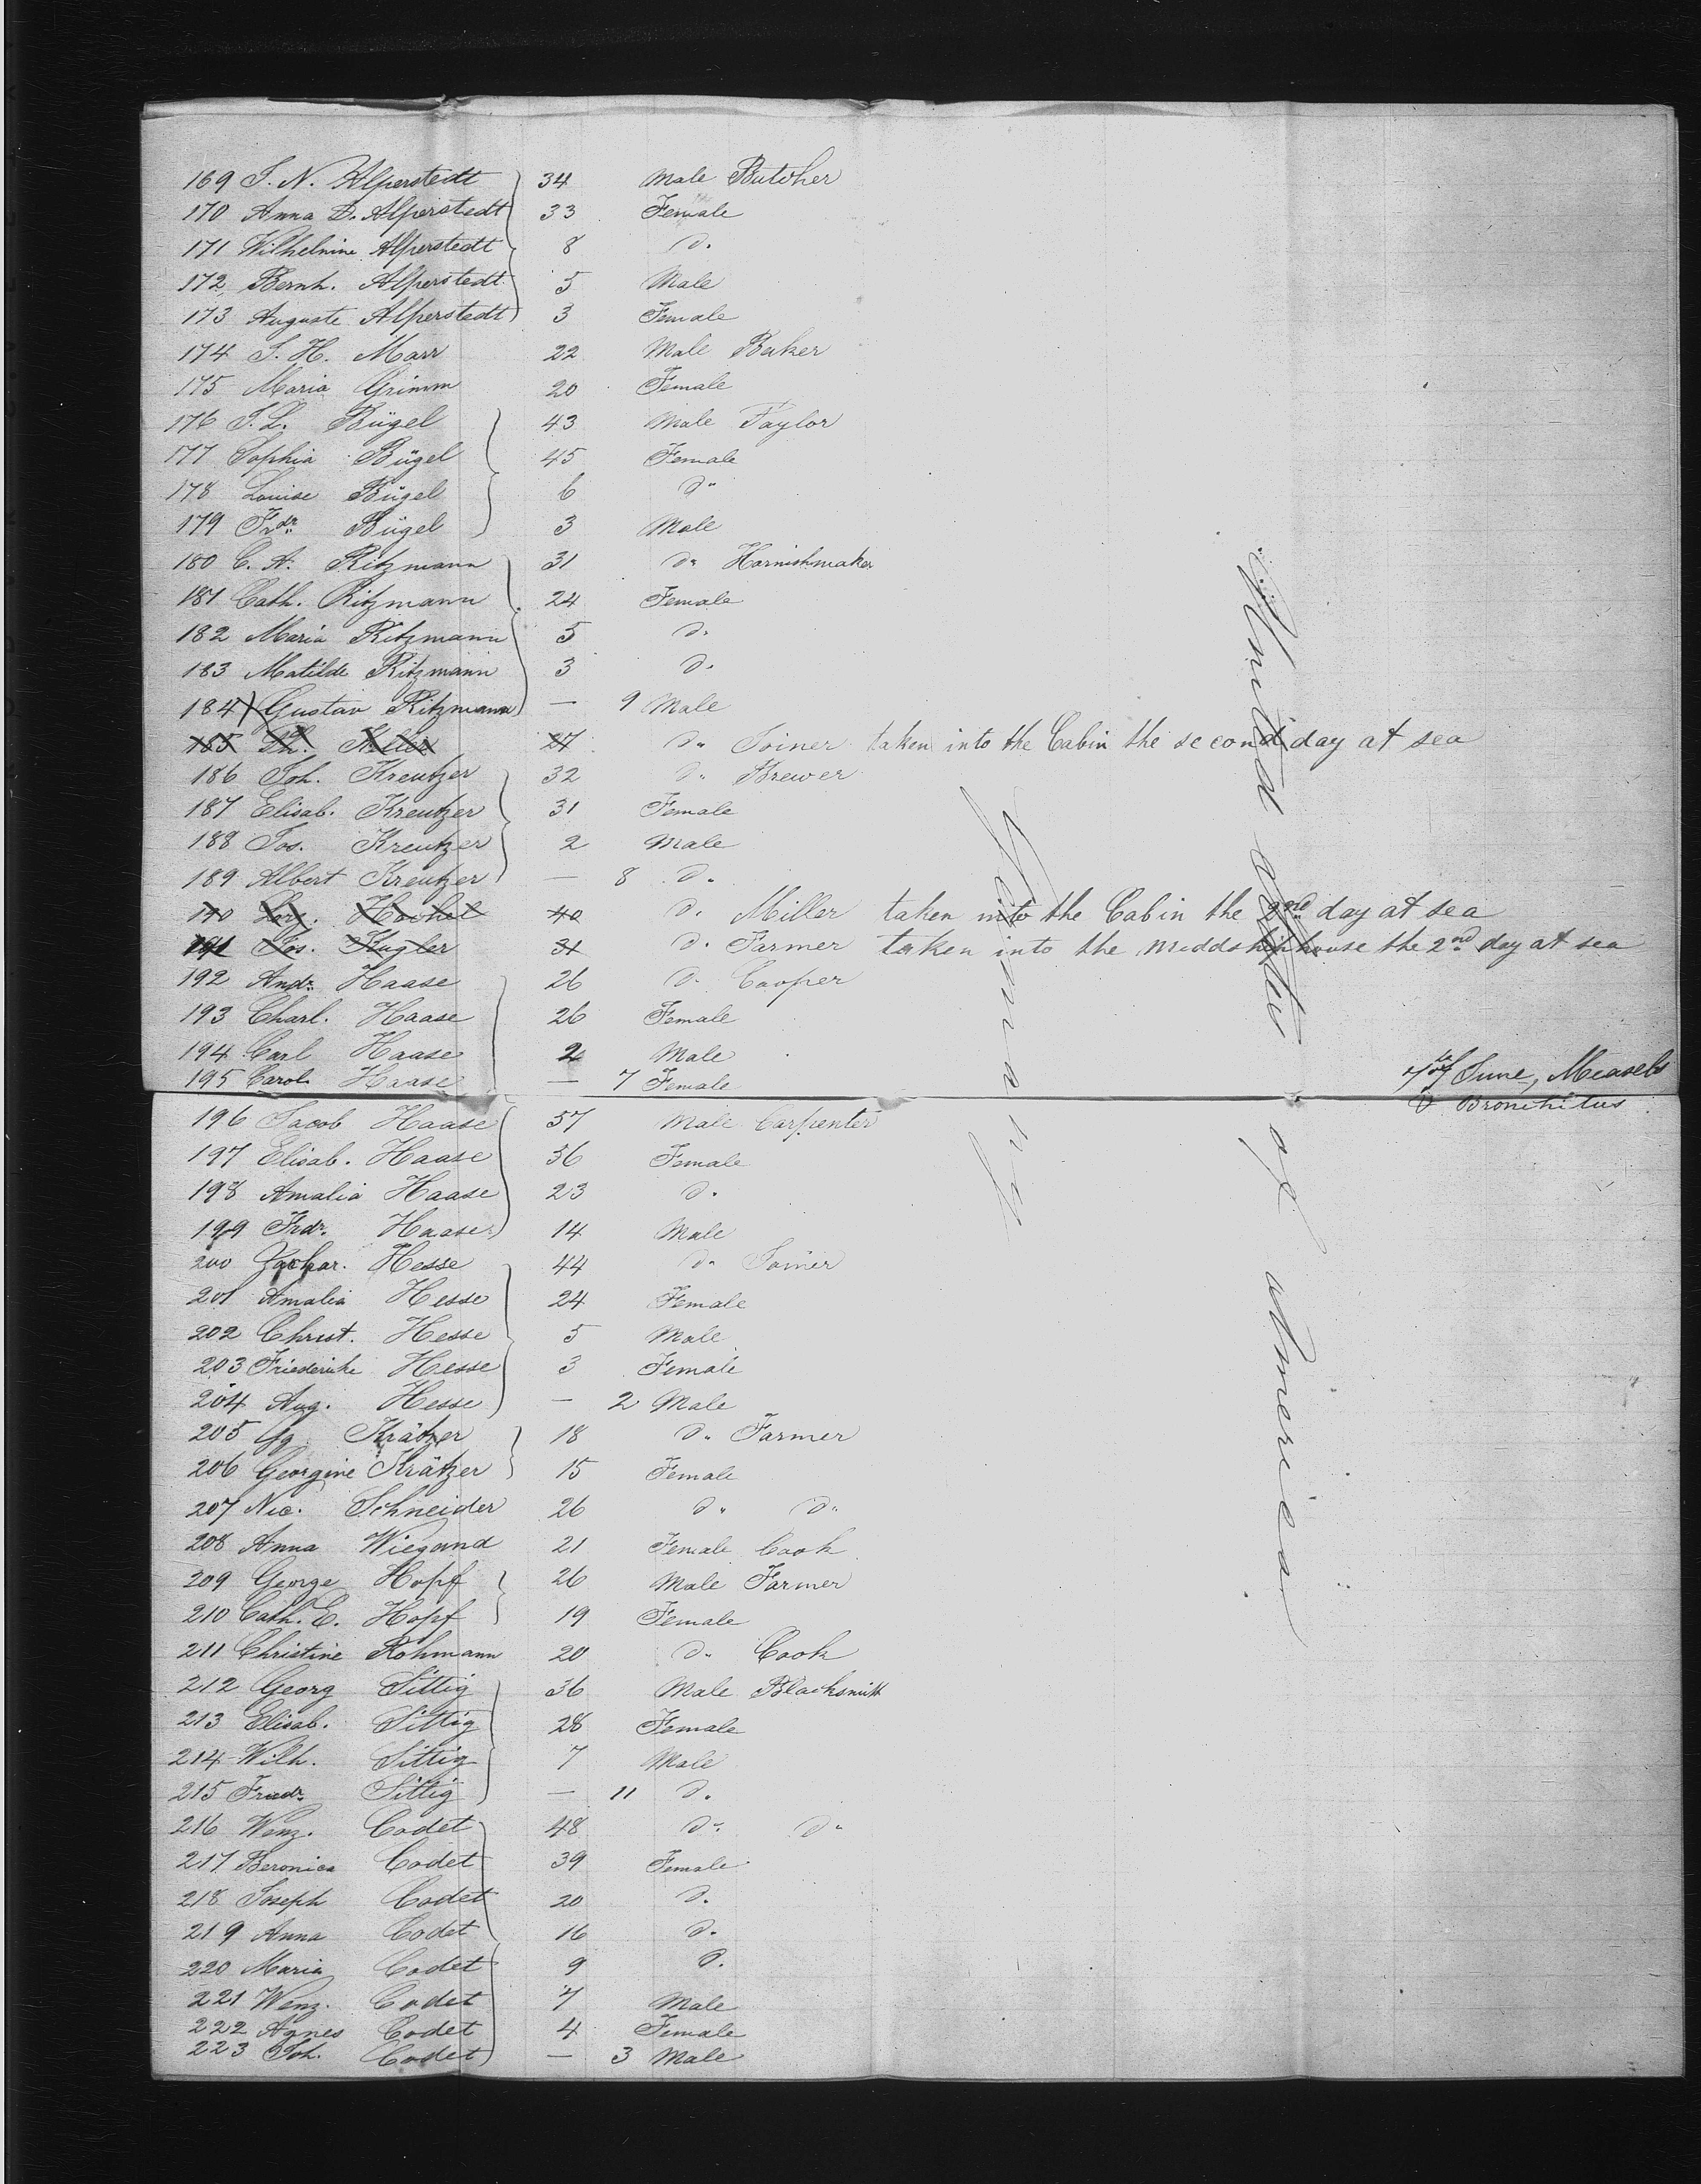 169 J. N. Alperstedt 34 Male Butcher
170 Anna D. Alperstedt 33 Female
171 Wilhelmine Alperstedt 8 do.
172 Bernh. Alperstedt 5 Male
173 Auguste Alperstedt 3 Female
174 J. H. Marr 22 Male Baker
175 Maria Grimm 20 Female
176 J. L. Bügel 43 Male Taylor
177 Sophia Bügel 45 Female
178 Louise Bügel 6 do.
179 Frdr. Bügel 3 Male
180 C. A. Ritzmann 31 do. Harnishmaker
181 Cath. Ritzmann 24 Female
182 Maria Ritzmann 5 do.
183 Matilde Ritzmann 3 do.
184 Gustav Ritzmann — 9 Male
185 Keller 27 do. Joiner taken into the Cabin the second day at sea
186 Joh. Kreutzer 32 do. Brewer
187 Elisab. Kreutzer 31 Female
188 Jos. Kreutzer 2 Male
189 Albert Kreutzer — 8 do.
190 40 do. Miller taken into the Cabin the 2nd day at sea
191 Jos. Kugler 31 do. Farmer taken into the Middshiphouse the 2nd day at sea
192 Andr. Haase 26 do. Cooper
193 Charl. Haase 26 Female
194 Carl Haase 2 Male
195 Carol. Haase — 7 Female June, Measels
Bronchitus
196 Jacob Haase 57 Male Carpenter
197 Elisab. Haase 56 Female
198 Amalia Haase 23 do.
199 Frdr. Haase 14 Male
200 Zachar. Hesse 44 do. Joiner
201 Amalia Hesse 24 Female
202 Christ. Hesse 5 Male
203 Friederike Hesse 3 Female
204 Aug. Hesse — 2 Male
205 Gg. Krätzer 18 do. Farmer
206 Georgine Krätzer 15 Female
207 Nic. Schneider 26 do. do.
208 Anna Wiegand 21 Female Cook
209 George Hopf 26 Male Farmer
210 Cath. E. Hopf 19 Female
211 Christine Rohmann 20 do. Cook
212 Georg Sittig 36 Male Blacksmith
213 Elisab. Sittig 28 Female
214 Wilh. Sittig 7 Male
215 Friedr. Sittig — 11 do.
216 Wenz. Codet 48 do. do.
217 Beronica Codet 39 Female
218 Joseph Codet 20 do.
219 Anna Codet 16 do.
220 Maria Codet 9 do.
221 Wenz. Codet 7 Male
222 Agnes Codet 4 Female
223 Joh. Codet — 3 Male
Germany
United States of America